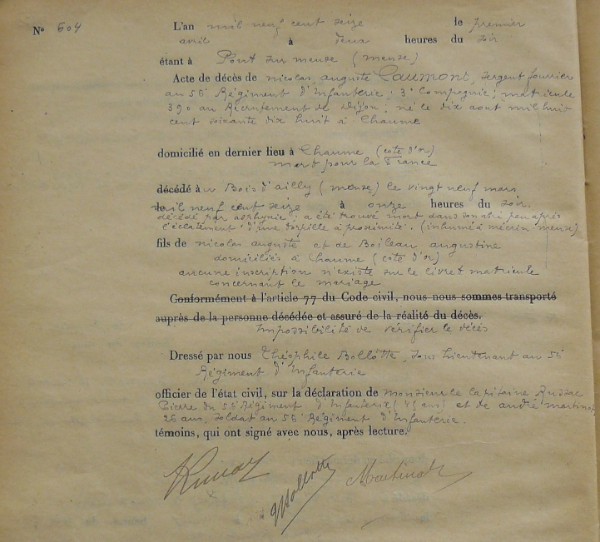 N° 604
L'an mil neuf cent seize le premier
avril à deux heures du soir
étant à Pont sur meuse (meuse)
Acte de décès de nicolas auguste Caumont, sergent fourrier
au 56e Régiment d'Infanterie; 3e Compagnie; matricule
390 au Recrutement de Dijon, né le dix aout mil huit
cent soixante dix huit à Chaume
domicilié en dernier lieu à Chaume (côte d'or)
mort pour la France
décédé au Bois d'ailly (meuse) le vingt neuf mars
mil neuf cent seize à onze heures du soir
décédé par asphyxie; a été trouvé mort dans peu après
l'éclatement d'une torpille à proximité. (inhumé à mécrin meuse)
fils de nicolas auguste et de Boileau augustine
domiciliés à Chaume (côte d'or)
aucune inscription n'existe sur le livret matricule
concernant le mariage
Conformément à l'article 77 du Code civil, nous nous sommes transporté
auprès de la personne décédée et assuré de la réalité du décès.
Impossibilité de vérifier le décès
Dressé par nous Théophile Bollotte, sous Lieutenant au 56e
Régiment d'Infanterie
officier de l'état civil, sur la déclaration de monsieur le Capitaine
Pierre du 56e Régiment d'Infanterie ans) et de andré
26 ans, soldat au 56e Régiment d'Infanterie.
témoins, qui ont signé avec nous, après lecture.
Bollotte